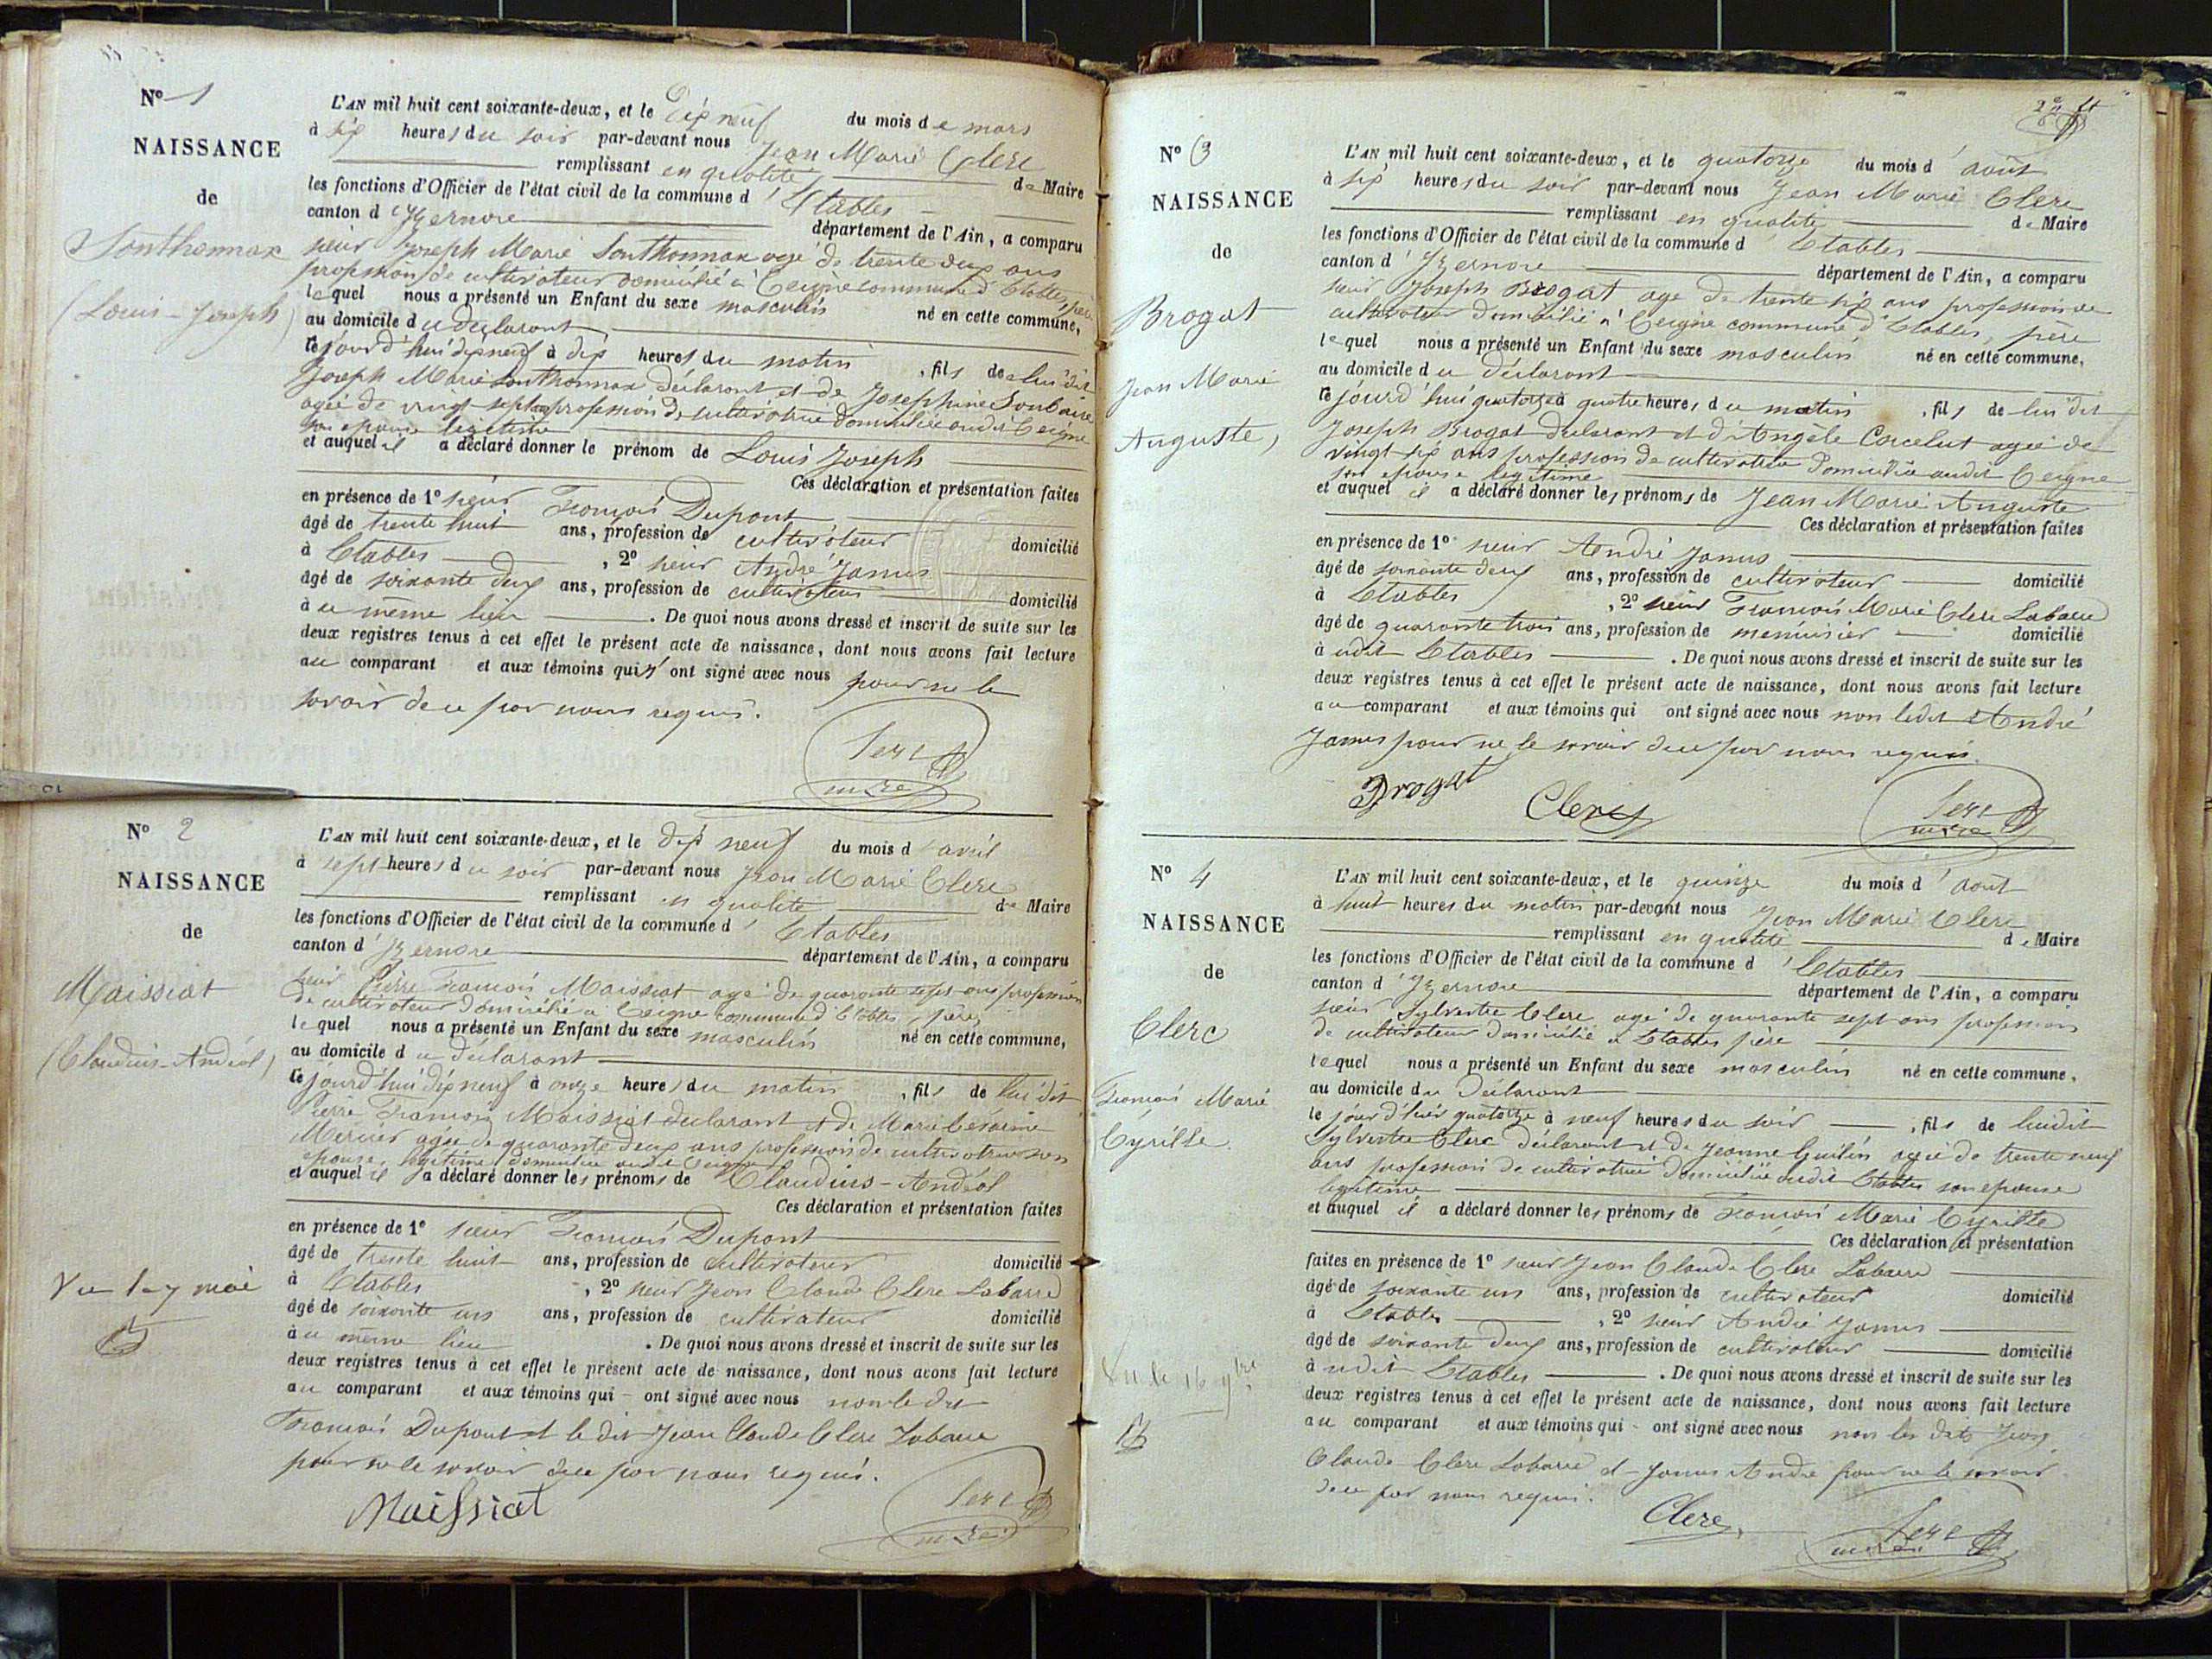 N° 1
NAISSANCE
de
Sonthonnax
(Louis-Joseph)
L'AN mil huit cent soixante-deux, et le dix neuf du mois de mars
à six heures du soir par-devant nous Jean Marie Clerc
remplissant en qualité de Maire
les fonctions d'Officier de l'état civil de la commune d'Etables
canton d'Izernore département de l'Ain, a comparu
sieur Joseph Marie Sonthonnax agé de trente deux ans
profession de cultivateur domicilié à Ceigne commune d'Etables, père
lequel nous a présenté un Enfant du sexe masculin né en cette commune,
au domicile du déclarant
cejourd'hui dix neuf à dix heures du matin , fils de lui dit
Joseph Marie Sonthonnax déclarant et de Josephine
agée de vingt sept ans profession de cultivatrice domiciliée audit Ceigne
son epouse legitime
et auquel il a déclaré donner le prénom de Louis Joseph
Ces déclaration et présentation faites
en présence de 1° sieur François Dupont
âgé de trente huit ans, profession de cultivateur domicilié
à Etables , 2° sieur André Janus
âgé de soixante deux ans, profession de cultivateur domicilié
à u même lieu . De quoi nous avons dressé et inscrit de suite sur les
deux registres tenus à cet effet le présent acte de naissance, dont nous avons fait lecture
au comparant et aux témoins qui n'ont signé avec nous pour ne le
savoir de ce par nous requis.
Clerc
maire
N° 2
NAISSANCE
de
Maissiat
(Claudius-Andéol)
Vu le 7 mai
L'AN mil huit cent soixante-deux, et le dix neuf du mois d'avril
à sept heures du soir par-devant nous Jean Marie Clerc
remplissant en qualité de Maire
les fonctions d'Officier de l'état civil de la commune d'Etables
canton d'Izernore département de l'Ain, a comparu
sieur Pierre François Maissiat agé de quarante sept ans profession
de cultivateur domicilié à Ceigne commune d'Etables, père,
lequel nous a présenté un Enfant du sexe masculin né en cette commune,
au domicile du déclarant
cejourd'hui dix neuf à onze heures du matin , fils de lui dit
Pierre François Maissiat déclarant et de Marie Césarine
Mercier agée de quarante deux ans profession de cultivatrice son
epouse legitime domiciliée audit Ceigne
et auquel il a déclaré donner les prénoms de Claudius-Andéol
Ces déclaration et présentation faites
en présence de 1° sieur François Dupont
âgé de trente huit ans, profession de cultivateur domicilié
à Etables , 2° sieur Jean Claude Clerc Labarre
âgé de soixante un ans, profession de cultivateur domicilié
à u même lieu . De quoi nous avons dressé et inscrit de suite sur les
deux registres tenus à cet effet le présent acte de naissance, dont nous avons fait lecture
au comparant et aux témoins qui ont signé avec nous non le dit
François Dupont et le dit Jean Claude Clerc Labarre
pour ne le savoir de ce par nous requis.
Maissiat
Clerc
maire
N° 3
NAISSANCE
de
Brogat
Jean Marie
Auguste,
L'AN mil huit cent soixante-deux, et le quatorze du mois d'août
à six heures du soir par-devant nous Jean Marie Clerc
remplissant en qualité de Maire
les fonctions d'Officier de l'état civil de la commune d'Etables
canton d'Izernore département de l'Ain, a comparu
sieur Joseph Brogat agé de trente six ans profession de
cultivateur domicilié à Ceigne commune d'Etables, père
lequel nous a présenté un Enfant du sexe masculin né en cette commune,
au domicile du déclarant
cejourd'hui quatorze à quatre heures du matin , fils de lui dit
Joseph Brogat déclarant et d'Angèle Corcelut agée de
vingt six ans profession de cultivatrice domiciliée audit Ceigne
son epouse legitime
et auquel il a déclaré donner les prénoms de Jean Marie Auguste
Ces déclaration et présentation faites
en présence de 1° sieur André Janus
âgé de soixante deux ans, profession de cultivateur domicilié
à Etables , 2° sieur François Marie Clerc Labarre
âgé de quarante trois ans, profession de menuisier domicilié
à udit Etables . De quoi nous avons dressé et inscrit de suite sur les
deux registres tenus à cet effet le présent acte de naissance, dont nous avons fait lecture
au comparant et aux témoins qui ont signé avec nous non ledit André
Janus pour ne le savoir de ce par nous requis.
Brogat Clerc Clerc
maire
N° 4
NAISSANCE
de
Clerc
François Marie
Cyrille
Vu le 16 9bre
L'AN mil huit cent soixante-deux, et le quinze du mois d'août
à huit heures du matin par-devant nous Jean Marie Clerc
remplissant en qualité de Maire
les fonctions d'Officier de l'état civil de la commune d'Etables
canton d'Izernore département de l'Ain, a comparu
sieur Sylvestre Clerc agé de quarante sept ans profession
de cultivateur domicilié à Etables père
lequel nous a présenté un Enfant du sexe masculin né en cette commune,
au domicile du déclarant
le jour d'hier quatorze à neuf heures du soir , fils de luidit
Sylvestre Clerc déclarant et de Jeanne Guilin agée de trente neuf
ans profession de cultivatrice domiciliée audit Etables son epouse
legitime
et auquel il a déclaré donner les prénoms de François Marie Cyrille
Ces déclaration et présentation
faites en présence de 1° sieur Jean Claude Clerc Labarre
âgé de soixante un ans, profession de cultivateur domicilié
à Etables , 2° sieur André Janus
âgé de soixante deux ans, profession de cultivateur domicilié
à udit Etables . De quoi nous avons dressé et inscrit de suite sur les
deux registres tenus à cet effet le présent acte de naissance, dont nous avons fait lecture
au comparant et aux témoins qui ont signé avec nous non les dits Jean
Claude Clerc Labarre et Janus André pour ne le savoir
de ce par nous requis.
Clerc, Clerc
maire